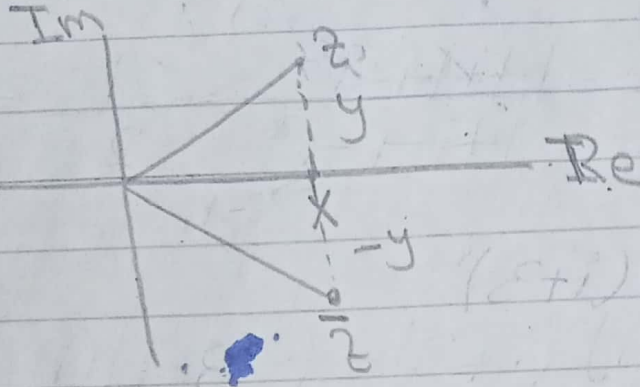 Im
z
y
Re
x
-y
z̄